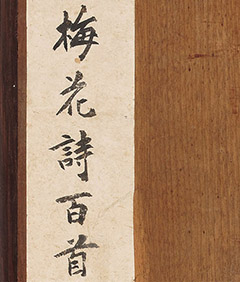 梅花詩百首